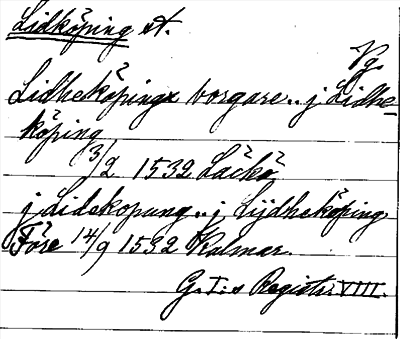 Lidköping st.
Vg.
Lidheköpings borgare.. j Lidhe-
köping
3/2 1532 Läckö
j Lideköpung.. j Lijdheköping
Före 14/9 1532 Kalmar.
G. I:s Registr. VIII.